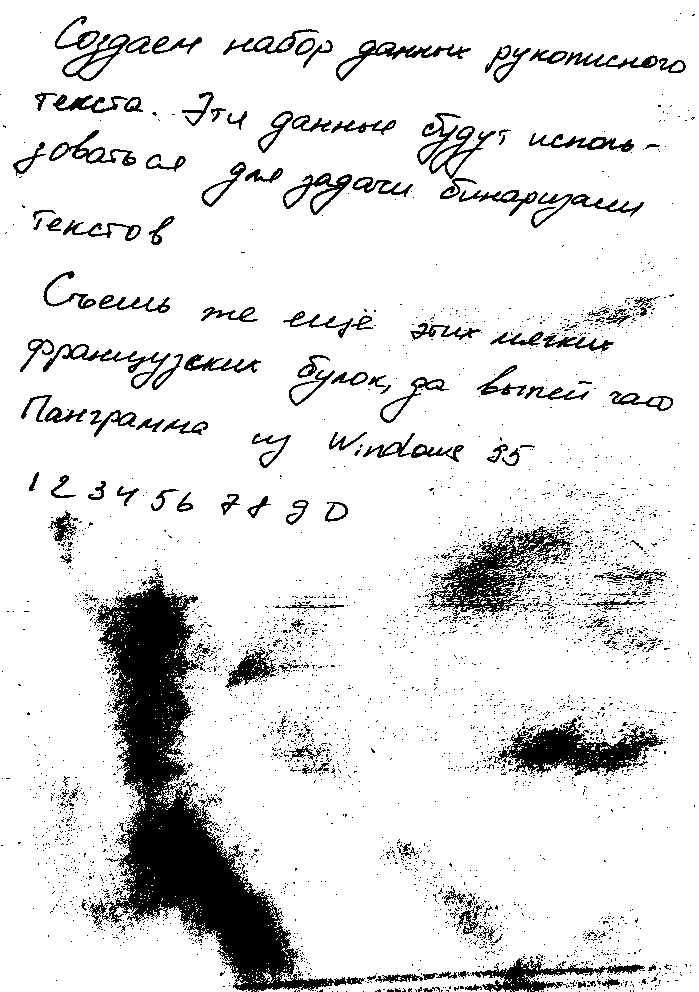 Создаем набор данных рукописного
текста. Эти данные будут исполь-
зоваться для задачи бинаризации
текстов
Съешь же ещё этих мягких
французских булок, да выпей чаю
Панграмма из Windows 95
1 2 3 4 5 6 7 8 9 0